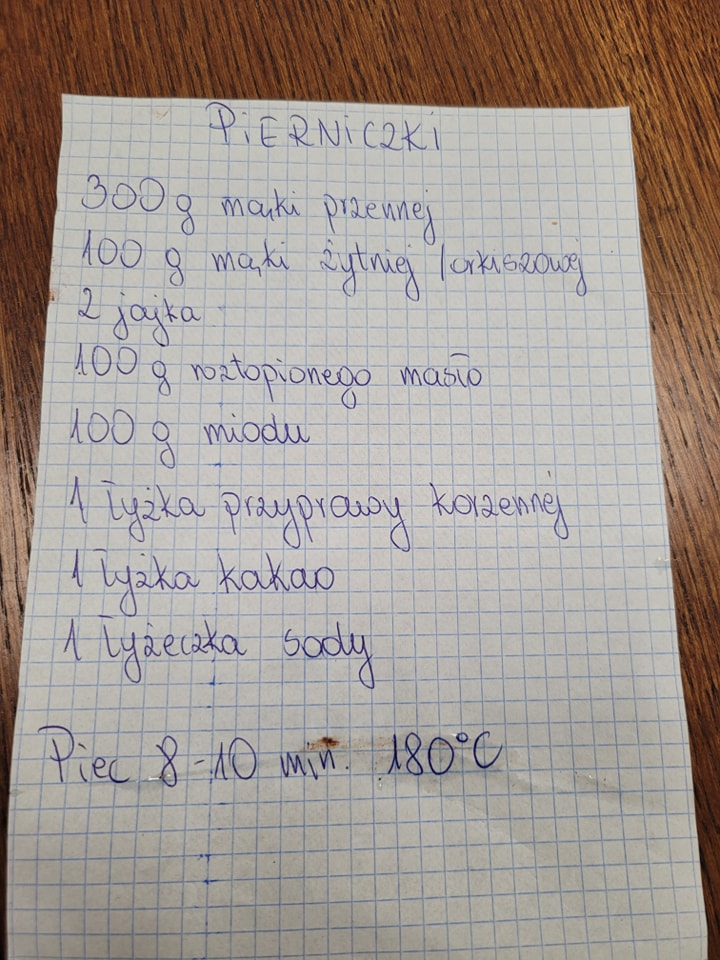 PiERNiCZKi
300 g mąki przennej
100 g mąki żytniej /orkiszowej
2 jajka
100 g roztopionego masło
100 g miodu
1 łyżka przyprawy korzennej
1 łyżka kakao
1 łyżeczka sody
Piec 8-10 min. 180°C